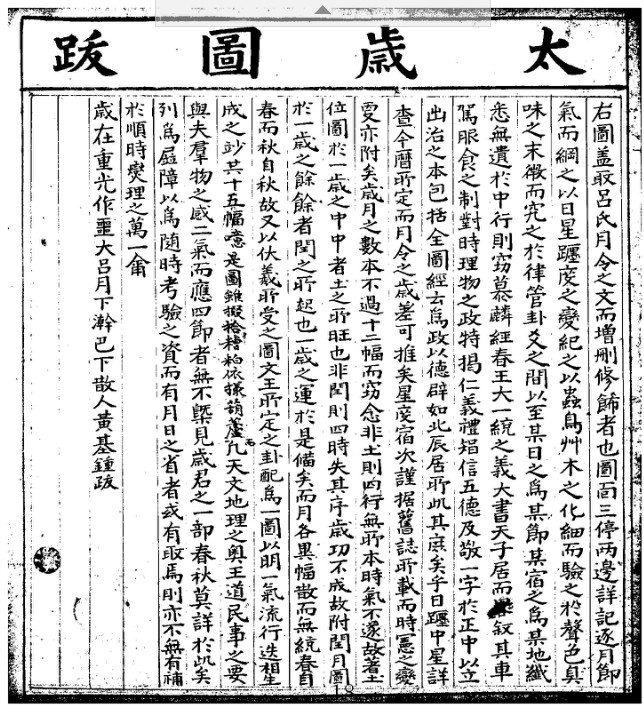 太歲圖跋
右圖盖取呂氏月令之文而增刪修餙者也圖面三停兩邊詳記逐月節
氣而綱之以日星躔度之變紀之以蟲鳥艸木之化細而驗之於聲色臭
味之末微而究之於律管卦爻之間以至某日之爲某節某宿之爲某地纖
悉無遺於中行則窃慕麟經春王大一統之義大書天子居而叙其車
駕服食之制對時理物之政特揭仁義禮智信五德及敬一字於正中以立
出治之本包括全圖經云爲政以德辟如北辰居所此其庶矣乎日躔中星詳
查今曆所定而月令之歲差可推矣星度宿次謹据舊誌所載而時憲之變
變亦附矣歲月之數本不過十二幅而窃念非土則四行無所本時氣不遂故著土
位圖於一歲之中中者土之所旺也非閏則四時失其序歲功不成故附閏月圖
於一歲之餘餘者閏之所起也一歲之運於是備矣而月各異幅散而無統春自
春而秋自秋故又以伏羲所受之圖文王所定之卦配爲一圖以明一氣流行迭相生
成之妙共十五幅噫是圖雖掇拾糟粕依㨾葫蘆而凡天文地理之奧王道民事之要
與夫羣物之感二氣而應四節者無不槩見歲君之一部春秋莫詳於此矣
列爲屛障以爲隨時考驗之資而有月日之省者或有取焉則亦不無有補
於順時燮理之萬一侖
歲在重光作噩大呂月下澣巴下散人黃基鍾跋
18